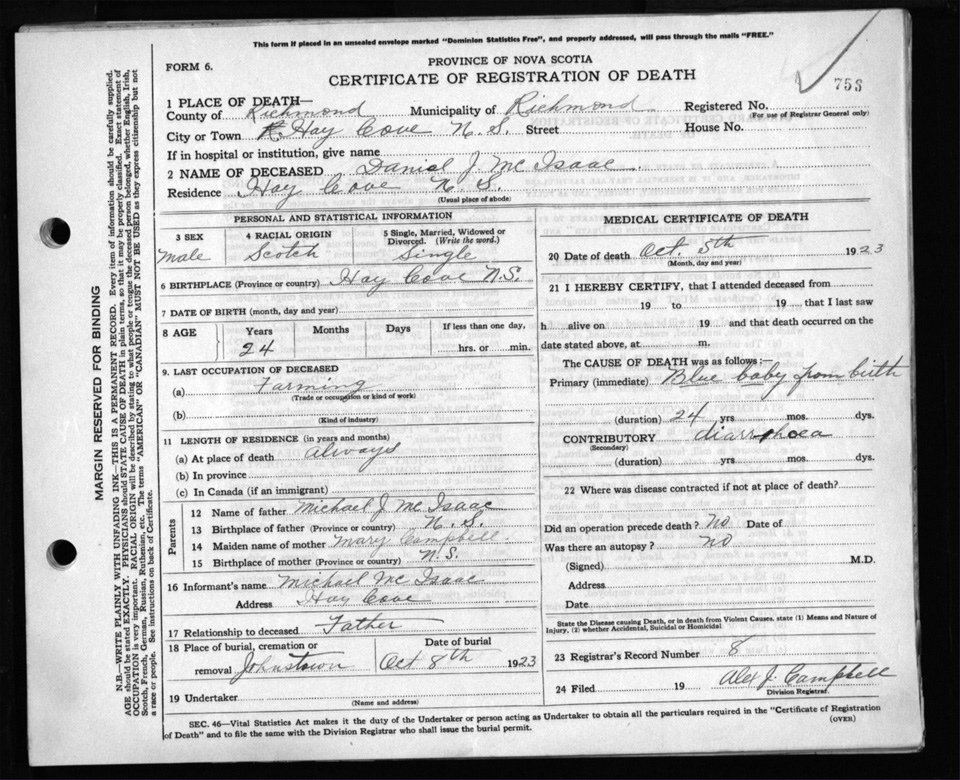 This form if placed in an unsealed envelope marked "Dominion Statistics Free", and properly addressed, will pass through the mails "FREE."
FORM 6.
PROVINCE OF NOVA SCOTIA
CERTIFICATE OF REGISTRATION OF DEATH
753
1 PLACE OF DEATH—
County of Richmond Municipality of Richmond Registered No.
(For use of Registrar General only)
City or Town Hay Cove N. S. Street House No.
If in hospital or institution, give name
2 NAME OF DECEASED Daniel J. Mc Isaac
Residence Hay Cove N. S.
(Usual place of abode)
PERSONAL AND STATISTICAL INFORMATION
3 SEX 4 RACIAL ORIGIN 5 Single, Married, Widowed or Divorced. (Write the word.)
Male Scotch Single
6 BIRTHPLACE (Province or country) Hay Cove N.S.
7 DATE OF BIRTH (month, day and year)
8 AGE Years Months Days If less than one day,
24 hrs. or min.
9. LAST OCCUPATION OF DECEASED
(a) Farming
(Trade or occupation or kind of work)
(b)
(Kind of industry)
11 LENGTH OF RESIDENCE (in years and months)
(a) At place of death always
(b) In province
(c) In Canada (if an immigrant)
Parents
12 Name of father Michael J. Mc Isaac
13 Birthplace of father (Province or country) N. S.
14 Maiden name of mother Mary Campbell
15 Birthplace of mother (Province or country) N. S.
16 Informant's name Michael Mc Isaac
Address Hay Cove
17 Relationship to deceased Father
18 Place of burial, cremation or removal Johnstown
Date of burial
Oct 8th 1923
19 Undertaker
(Name and address)
MEDICAL CERTIFICATE OF DEATH
20 Date of death Oct. 5th 1923
(Month, day and year)
21 I HEREBY CERTIFY, that I attended deceased from
19 to 19 that I last saw
h alive on 19 and that death occurred on
date stated above, at m.
The CAUSE OF DEATH was as follows:—
Primary (immediate) Blue baby from birth
(duration) 24 yrs mos. dys.
CONTRIBUTORY diarrhoea
(Secondary)
(duration) yrs mos. dys.
22 Where was disease contracted if not at place of death?
Did an operation precede death? No Date of
Was there an autopsy? No
(Signed) M.D.
Address
Date
State the Disease causing Death, or in death from Violent Causes, state (1) Means and Nature of Injury, (2) whether Accidental, Suicidal or Homicidal.
23 Registrar's Record Number 8
24 Filed 19 Alex J. Campbell
Division Registrar.
SEC. 46—Vital Statistics Act makes it the duty of the Undertaker or person acting as Undertaker to obtain all the particulars required in the "Certificate of Registration
of Death" and to file the same with the Division Registrar who shall issue the burial permit.
(OVER)
MARGIN RESERVED FOR BINDING
N.B.—WRITE PLAINLY WITH UNFADING INK—THIS IS A PERMANENT RECORD. Every item of information should be carefully supplied.
AGE should be stated EXACTLY. PHYSICIANS should STATE CAUSE OF DEATH in plain terms, so that it may be properly classified. Exact statement of
OCCUPATION is very important. RACIAL ORIGIN will be described by stating to what people or tongue the deceased person belonged, whether English, Irish,
Scotch, French, German, Russian, Ruthenian, etc. The terms "AMERICAN" OR "CANADIAN" MUST NOT BE USED as they express citizenship but not
a race or people. See instructions on back of Certificate.